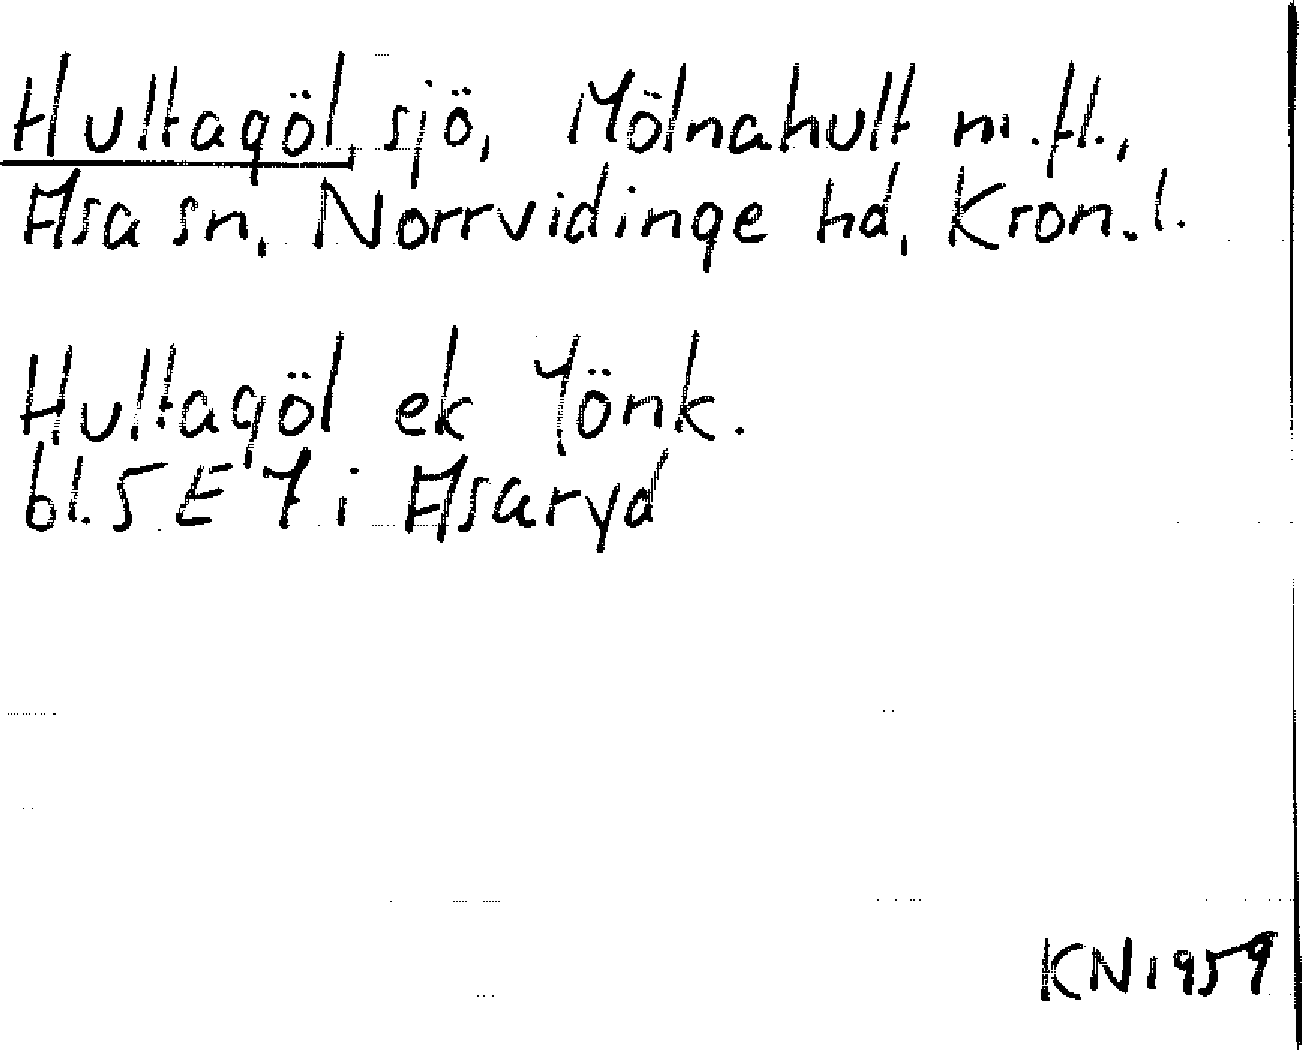 Hultagöl, sjö, Mölnahult m.fl.,
Asa sn, Norrvidinge hd, Kron.l.
Hultagöl ek Jönk.
bl. 5 E 7 i Asaryd
KN 1959